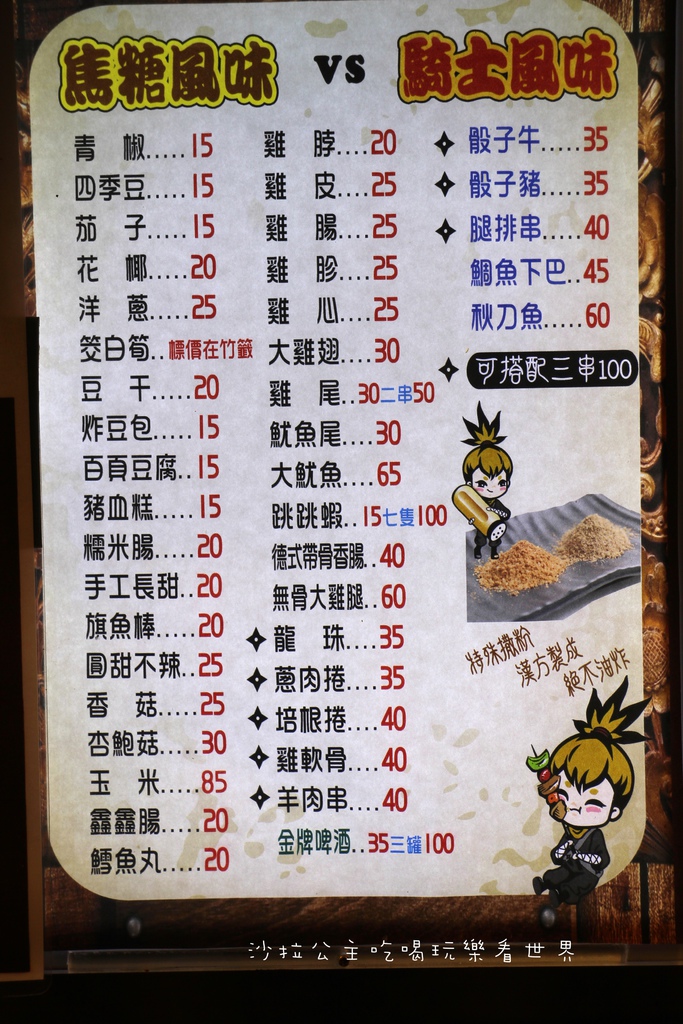 焦糖風味 vs 騎士風味
青椒.....15
四季豆.....15
茄子.....15
花椰.....20
洋蔥.....25
筊白筍..標價在竹籤
豆干.....20
炸豆包.....15
百頁豆腐..15
豬血糕.....15
糯米腸.....20
手工長甜..20
旗魚棒.....20
圓甜不辣..25
香菇.....25
杏鮑菇....30
玉米.....85
鑫鑫腸....20
鱈魚丸.....20
雞脖....20
雞皮....25
雞腸....25
雞胗....25
雞心....25
大雞翅....30
雞尾..30二串50
魷魚尾....30
大魷魚....65
跳跳蝦..15七隻100
德式帶骨香腸..40
無骨大雞腿..60
龍珠....35
蔥肉捲....35
培根捲....40
雞軟骨....40
羊肉串....40
金牌啤酒..35三罐100
骰子牛.....35
骰子豬.....35
腿排串.....40
鯛魚下巴..45
秋刀魚.....60
可搭配三串100
特殊撒粉
漢方製成
絕不油炸
沙拉公主吃喝玩樂看世界